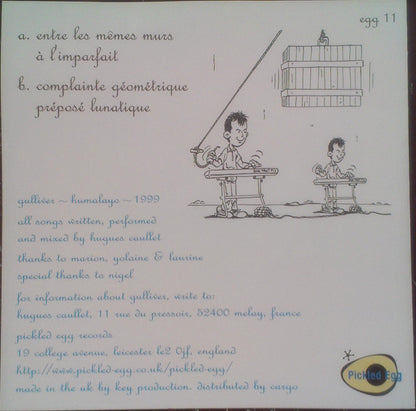 egg 11
a. entre les mêmes murs
à l'imparfait
b. complainte géométrique
préposé lunatique
gulliver ~ humalayo ~ 1999
all songs written, performed
and mixed by hugues caullet
thanks to marion, yolaine & laurine
special thanks to nigel
for information about gulliver, write to:
hugues caullet, 11 rue du pressoir, 52400 melay, france
pickled egg records
19 college avenue, leicester le2 0jf, england
http://www.pickled-egg.co.uk/pickled-egg/
made in the uk by key production. distributed by cargo
Pickled Egg